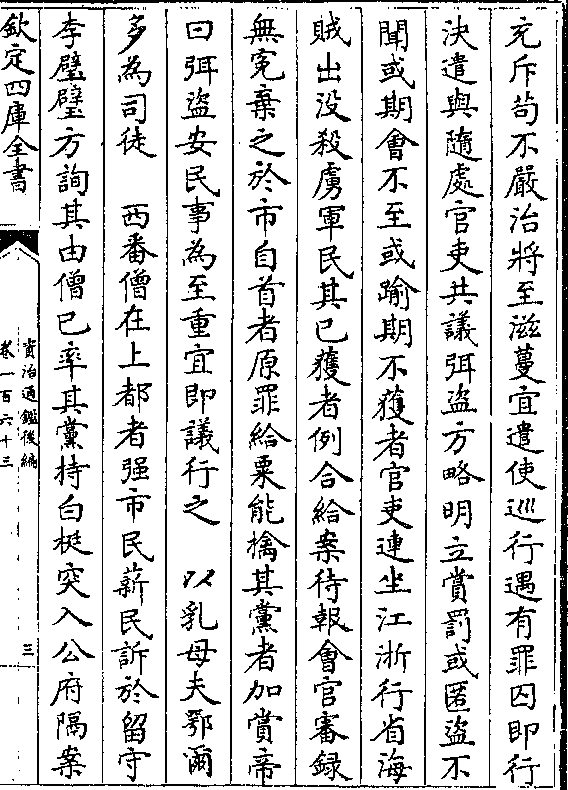 充斥苟不嚴治將至滋蔓宜遣使巡行遇有罪囚即行
決遣與隨處官吏共議弭盜方略明立賞罰或匿盜不
聞或期會不至或踰期不獲者官吏連坐江浙行省海
賊出没殺虜軍民其已獲者例合給案待報會官審録
無冤棄之於市自首者原罪給粟能擒其黨者加賞帝
曰弭盜安民事為至重宜即議行之　以乳母夫鄂爾
多為司徒　西番僧在上都者强市民薪民訴於留守
李璧璧方詢其由僧已率其黨持白梃突入公府隔案
欽定四庫全書
資治通鑑後編
卷一百六十三
三